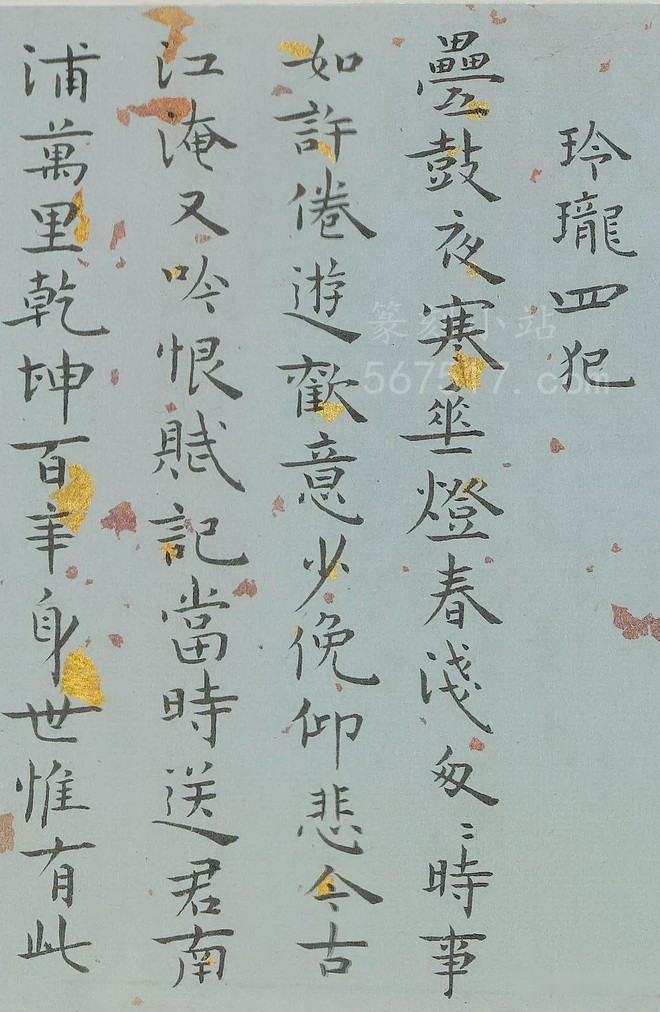 玲瓏四犯
疊鼓夜寒華燈春淺匆〻時事
如許倦遊歡意少俛仰悲今古
江淹又吟恨賦記當時送君南
浦萬里乾坤百年身世惟有此
篆刻小站
567517.com